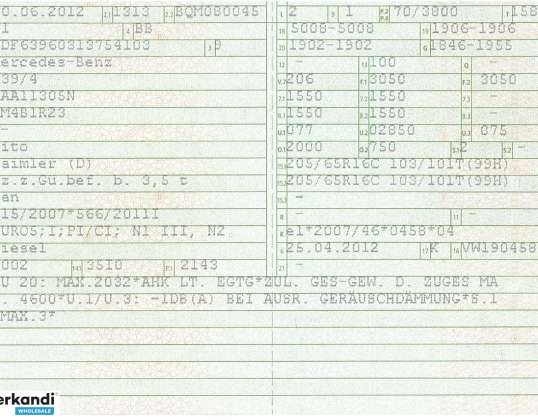 0.06.2012 2.1 1313 2.2 BQM080045
1 4 BB
DF63960313754103 3 9
ercedes-Benz
39/4
AA11305N
M4B1R23
-
ito
aimler (D)
z.z.Gü.bef. b. 3,5 t
an
15/2007*566/2011I
URO5;I;PI/CI; N1 III, N2
iesel
002 14.1 3510 P.1 2143
L 2 9 1 P.2 P.4 70/3800 T 158
18 5008-5008 19 1906-1906
20 1902-1902 G 1846-1955
12 - 13 100 Q -
V.7 206 F.1 3050 F.2 3050
7.1 1550 7.2 1550 7.3 -
8.1 1550 8.2 1550 8.3 -
U.1 077 U.2 02850 U.3 075
O.1 2000 O.2 750 S.1 2 S.2 -
15.1 205/65R16C 103/101T(99H)
15.2 205/65R16C 103/101T(99H)
15.3 -
R - 11 -
K e1*2007/46*0458*04
6 25.04.2012 17 K 16 VW190458
21 -
U 20: MAX.2032*AHK LT. EGTG*ZUL. GES-GEW. D. ZUGES MA
. 4600*U.1/U.3: -1DB(A) BEI AUSR. GERÄUSCHDÄMMUNG*S.1
MAX.3*
erkandi
WHOLESALE